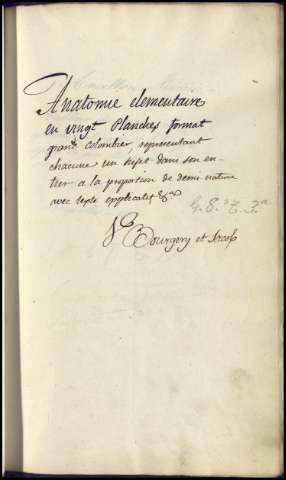 Anatomie elementaire
en vingt Planches format
grand colombier representant
chacune un sujet dans son en-
tier a la proportion de demi nature
avec texte explicatif &ca
Vo Bourgery et Jacob